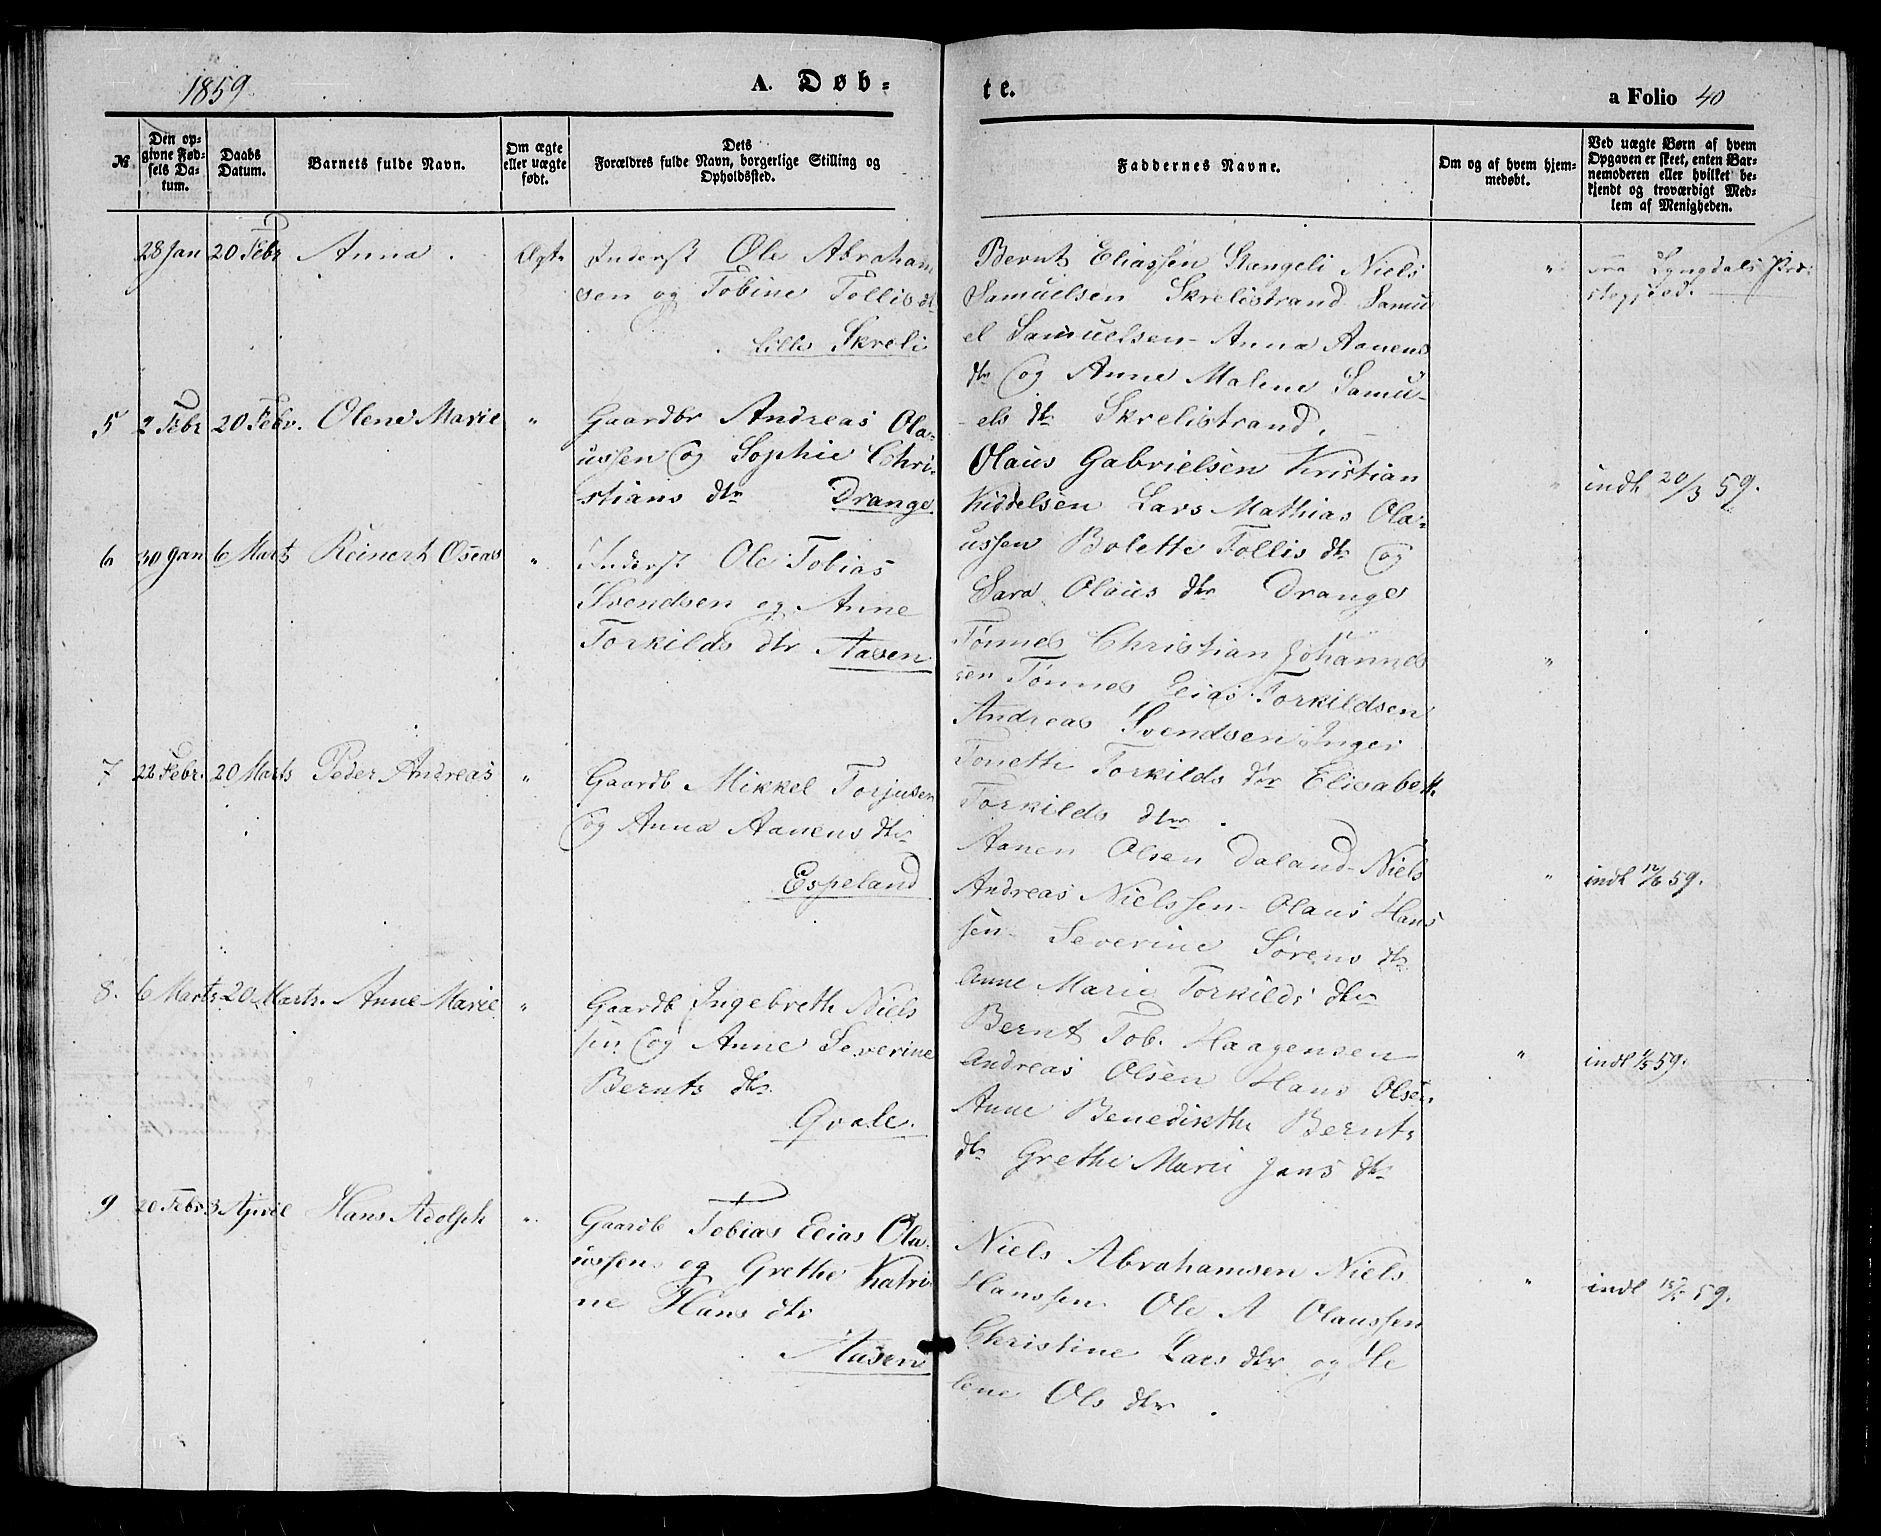 1859
A. Døb-
te.
a Folio 40
№
Den op-
givne Fød-
sels Da-
tum.
Daabs
Datum.
Barnets fulde Navn.
Om ægte
eller uægte
født.
Dets
Forældres fulde Navn, borgerlige Stilling og
Opholdssted.
Faddernes Navne.
Om og af hvem hjem-
medøbt.
Ved uægte Børn af hvem
Opgaven er skeet, enten Bar-
nemoderen eller hvilket be-
kjendt og troværdigt Med-
lem af Menigheden.
28 Jan 20 Febr Anna . Ægte Inderst Ole Abraham
sen og Tobine Tollis dt
Lille Skreli
Bernt Eliassen Stangeli Niels
Samuelsen Skrelistrand Samu
el Samuelsen - Anna Aanens
dtr og Anne Malene Samu-
els dt Skrelistrand.
" fra Lyngdals Præ:
stegjeld.
5 2 Febr 20 Febr. Olene Marie " Gaardbr Andreas Ola-
ussen og Sophie Chri-
stians dtr Drange
Olaus Gabrielsen Kristian
Kiddelsen Lars Mathias Ola-
ussen Bolette Tollis dtr og
Sara Olaus dtr Drange
" indh 20/3 59.
6 30 Jan 6 Marts Reinert Oseas " Inderst Ole Tobias
Svendsen og Anne
Torkilds dtr Aasen
Tønnes Christian Johannes
sen Tønnes Elias Torkildsen
Andreas Svendsen Inger
Toneth Torkilds dtr Elisabeth
Torkilds dtr .
"
7 22 Febr. 20 Marts Peder Andreas " Gaardb Mikkel Torjusen
og Anna Aanens dtr
Espeland
Aanen Olsen Daland - Niels
Andreas Nielssen - Olaus Hans
sen - Severine Sørens dtr
Anne Marie Torkilds dtr
" indh 12/6 59.
8. 6 Marts 20 Marts. Anne Marie " Gaardb Ingebreth Niels
sen og Anne Severine
Bernts dtr
Qvale.
Bernt Tob. Haagensen
Andreas Olsen Hans Olsen
Anne Benedikthe Bernts
dtr Grethe Marie Jens dtr
" indl 59.
9 20 Febr 3 April Hans Adolph " Gaardb Tobias Elias Ola-
ussen og Grethe Katri
ne Hans dtr
Aasen
Niels Abrahamsen Niels
Hanssen Ole A Olaussen
Christine Lars dtr og He
lene Ols dtr .
" indl 59.